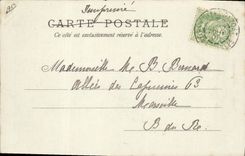 Imprimé
CARTE POSTALE
Ce côté est exclusivement réservé à l'adresse.
Mademoiselle M. B. Bernard
Allées des Capucines 63
Marseille
B du Rh.